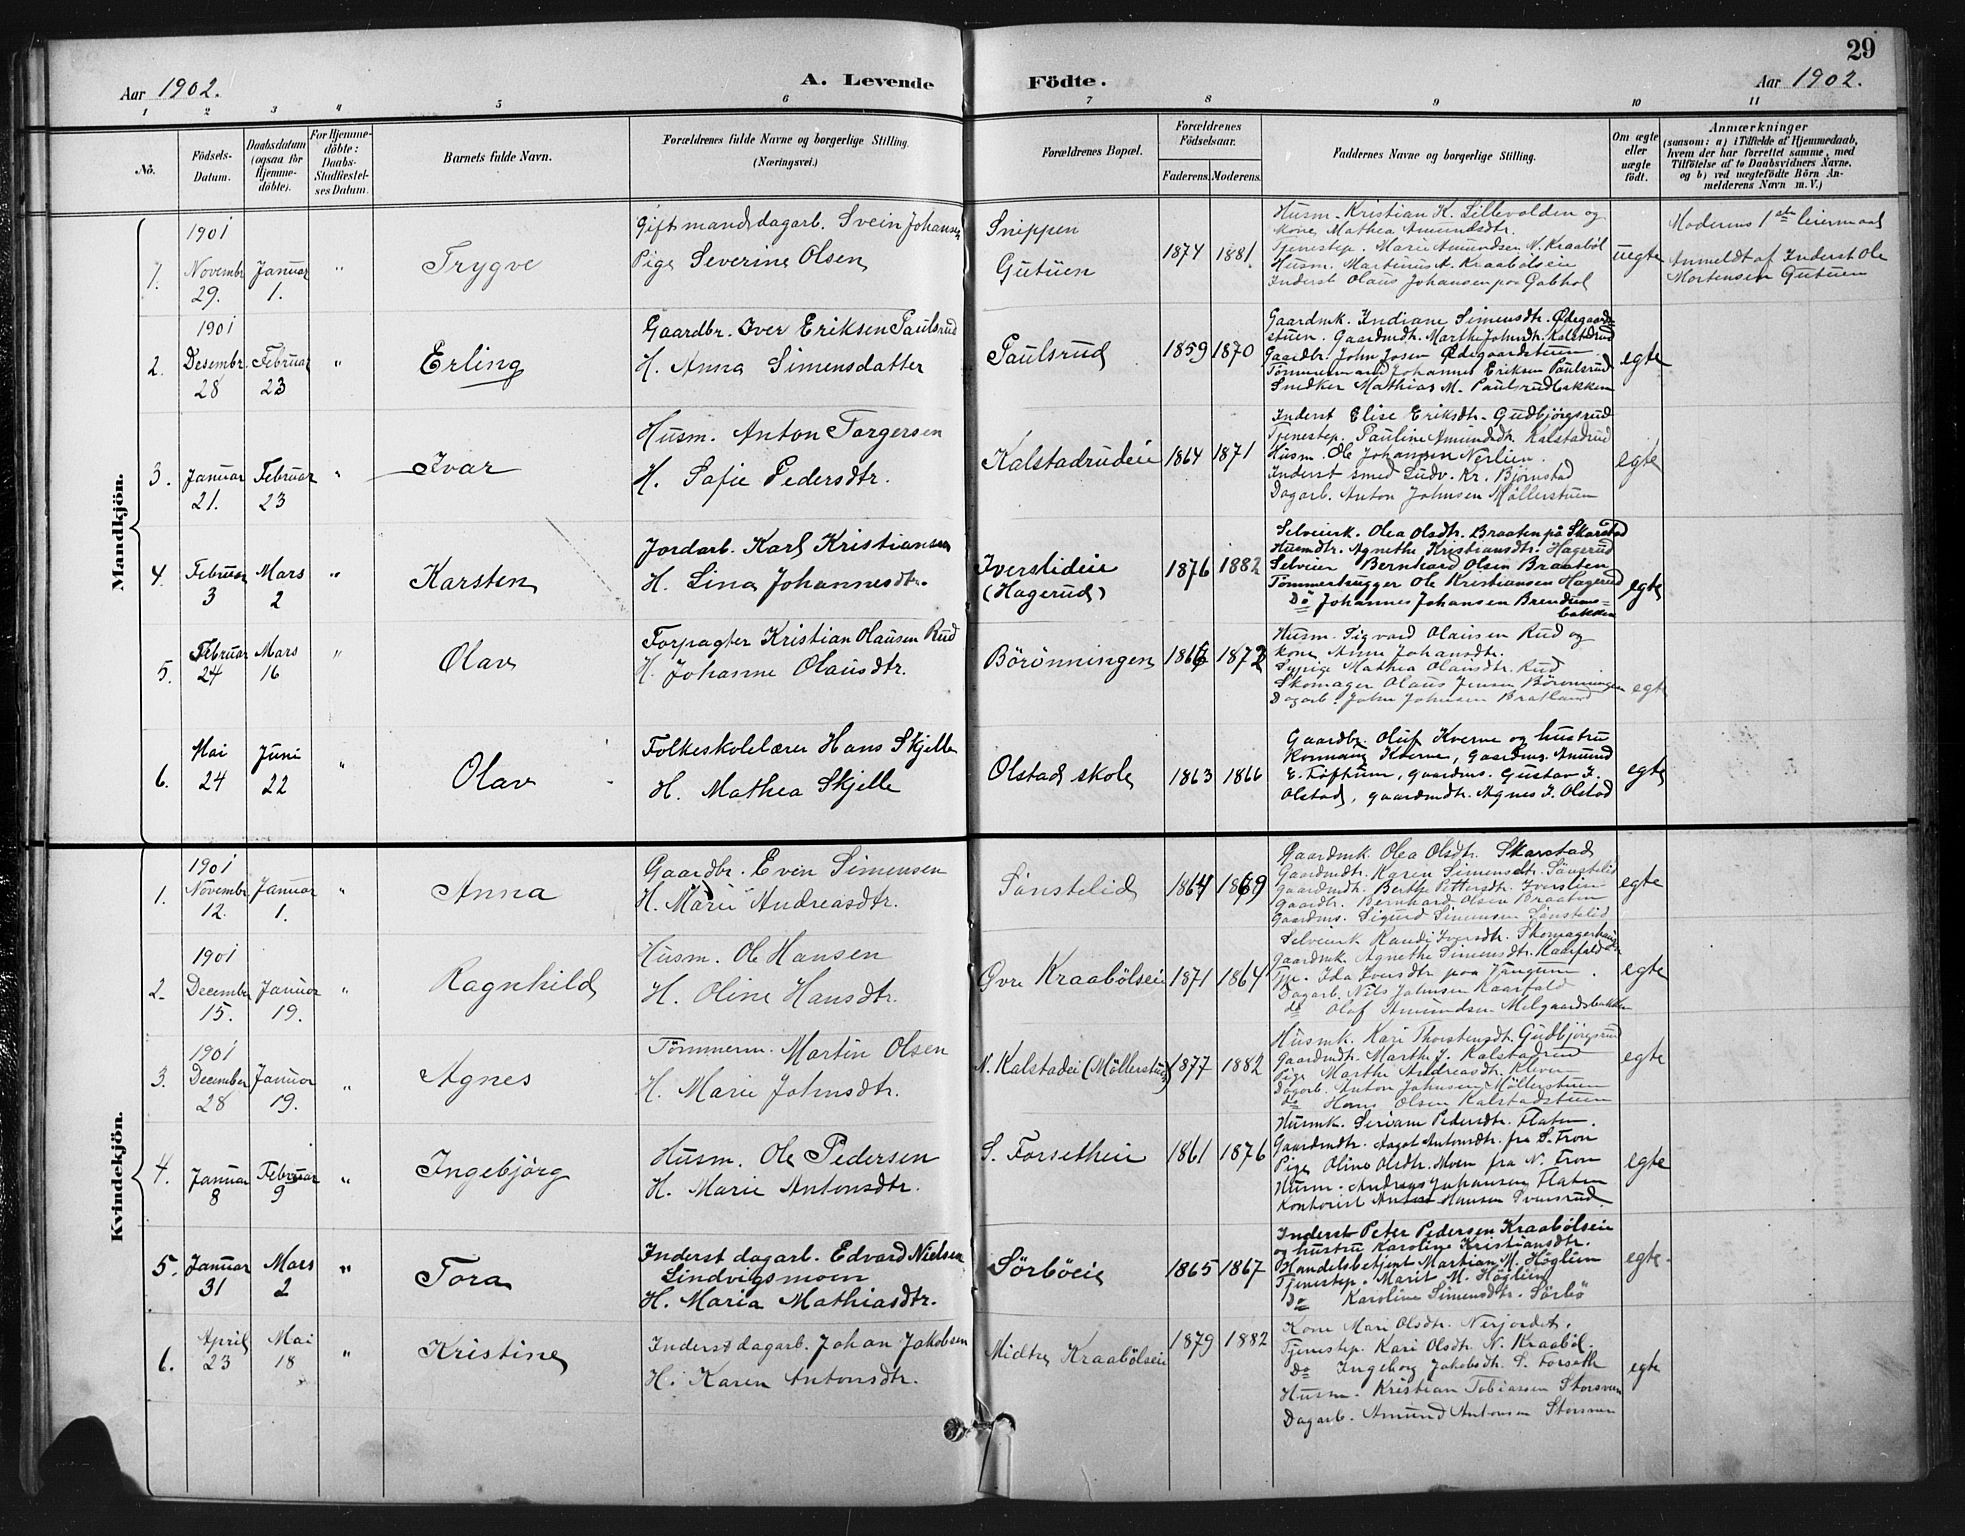 29
Aar 1902.
A. Levende Födte.
Aar 1902.
1 2 3 4 5 6 7 8 9 10 11
No.
Födsels-Datum.
Daabsdatum (ogsaa for Hjemme-döbte).
For Hjemme-döbte: Daabs-Stadfæstel-ses Datum.
Barnets fulde Navn.
Forældrenes fulde Navne og borgerlige Stilling. (Næringsvei.)
Forældrenes Bopæl.
Forældrenes Födselsaar.
Faderens. Moderens.
Faddernes Navne og borgerlige Stilling.
Om ægte eller uægte födt.
Anmærkninger
(saasom: a) i Tilfælde af Hjemmedaab, hvem der har forrettet samme, med Tilföielse af to Daabsvidners Navne, og b) ved uægtefödte Börn An-melderens Navn m. V.)
Mandkjön.
1.
1901
Novembr
29.
Januar
1.
"
Trygve
Gift mand, dagarb. Svein Johansen
Pige Severine Olsen
Snippen
Gutuen
1874
1881.
Husm. Kristian K. Lillevolden og
kone Mathea Amundsdtr.
Tjenestep. Marie Amundsen N. Kraaböl
Husm. Martinus A. Kraabölseie
Inderst Olaus Johansen paa Gabhol
uegte
Moderens 1ste leiermaal
Anmeldt af Inderst Ole
Mortensen Gutuen
2.
1901
Desembr.
28
Februar
23
"
Erling
Gaardbr. Iver Eriksen Paulsrud
H. Anna Simensdatter
Paulsrud
1859
1870
Gaardmk. Indiane Simensdtr. Ødegaard-
stuen. Gaardmdtr. Marthe Johnsdtr. Kalstadrud
Gaardbr. John Josen Ødegaardstuen
Tömmermand Johannes Eriksen Paulsrud
Snedker Mathias M. Paulsrudbakken
egte
3.
Januar
21.
Februar
23
"
Ivar
Husm. Anton Torgersen
H. Sofie Pedersdtr.
Kalstadrudeie
1864
1871
Inderst Elise Eriksdtr. Gudbjörgsrud
Tjenestep. Pauline Amundsdtr. Kalstadrud
Husm. Ole Johansen Nerlien.
Inderst smed Ludv. Kr. Björnstad
Dagarb. Anton Johnsen Möllerstuen
egte
4.
Februar
3
Mars
2
"
Karsten
Jordarb. Karl Kristiansen
H. Lina Johannesdtr.
Iverslideie
(Hagerud)
1876
1882
Selveierk. Olea Olsdtr. Braaten på Skarstad
Husmdtr. Agnethe Kristiansdtr. Hagerud
Selveier Bernhard Olsen Braaten
Tömmerhugger Ole Kristiansen Hagerud
Do Johannes Johansen Brendlums-
bakken
egte
5.
Februar
24
Mars
16
"
Olav
Forpagter Kristian Olausen Rud
H. Johanne Olausdtr.
Börönningen
1866
1872
Husm. Sigvard Olausen Rud og
kone Anne Johansdtr.
Sypige Mathea Olausdtr. Rud
Skomager Olaus Jensen Börönningen
Dagarb. John Johnsen Bratland
egte
6.
Mai
24
Juni
22
"
Olav
Folkeskolelærer Hans Skjelle
H. Mathea Skjelle
Olstad skole
1863
1866
Gaardbr. Oluf Kverne og hustru
Kverne, Gaardms. Amund
E. Toftum, gaardms. Gustav J.
Olstad, gaardmdtr. Agnes J. Olstad
egte
Kvindekjön.
1.
1901
Novembr
12.
Januar
1.
"
Anna
Gaardbr. Even Simensen
H. Marie Andreasdtr.
Sönstelid
1864
1869
Gaardmk. Olea Olsdtr. Skarstad
Gaardmdtr. Karen Simensdtr. Sönstelid
Gaardmdtr. Berthe Pettersdtr. Iverslien
Gaardbr. Bernhard Olsen Braaten
Gaardms. Sigurd Simensen Sönstelid
egte
2.
1901
December
15.
Januar
19.
"
Ragnhild
Husm. Ole Hansen
H. Oline Hansdtr.
Øvre Kraabölseie
1871
1864
Selveierk. Randi Iversdtr. Skomagerhaugen
Gaardmk. Agnethe Simensdtr. Kaarfald
Tje. Ida Iversdtr. paa Tangum
Dagarb. Nils Johnsen Kaarfald
do Olaf Amundsen Melgaardsbakken
egte
3.
1901
December
28
Januar
19.
"
Agnes
Tömmerm. Martin Olsen
H. Marie Johnsdtr.
N. Kalstadeie (Möllerstuen)
1877
1882
Husmk. Kari Thorstensdtr. Gudbjörgsrud
Gaardmdtr. Marthe J. Kalstadrud
Pige Marthe Andreasdtr. Kleven
Dagarb. Anton Johnsen Möllerstuen
do Hans Olsen Kalstadstuen
egte
4.
Januar
8
Februar
9
"
Ingebjörg
Husm. Ole Pedersen
H. Marie Antonsdtr.
S. Forsetheie
1861
1876
Husmk. Siriane Pedersdtr. Flaten.
Gaardmdtr. Aagot Antonsdtr. fra S. Tron
Pige Oline Olsdtr. Moen fra N. Tron
Husm. Andreas Johansen Flaten
Kontorist Anton Hansen Svensrud
egte
5.
Januar
31
Mars
2
"
Tora
Inderst dagarb. Edvard Nielsen
Lindvigsmoen
H. Maria Mathiasdtr.
Sörböeie
1865
1867
Inderst Peter Pedersen Kraabölseie
og hustru Karoline Kristiansdtr.
Handelsbetjent Martian M. Höglien
Tjenestep. Marit M. Höglien
Do Karoline Simensdtr. Sörbö
egte
6.
April
23
Mai
18
"
Kristine
Inderst dagarb. Johan Jakobsen
H. Karen Antonsdtr.
Midtre Kraabölseie
1879
1882
Kone Mari Olsdtr. Nerjordet.
Tjenestep. Kari Olsdtr. N. Kraaböl.
Do Ingeborg Jakobsdtr. S. Forseth
Husm. Kristian Tobiassen Storsveen
Dagarb. Amund Antonsen Storsveen
egte